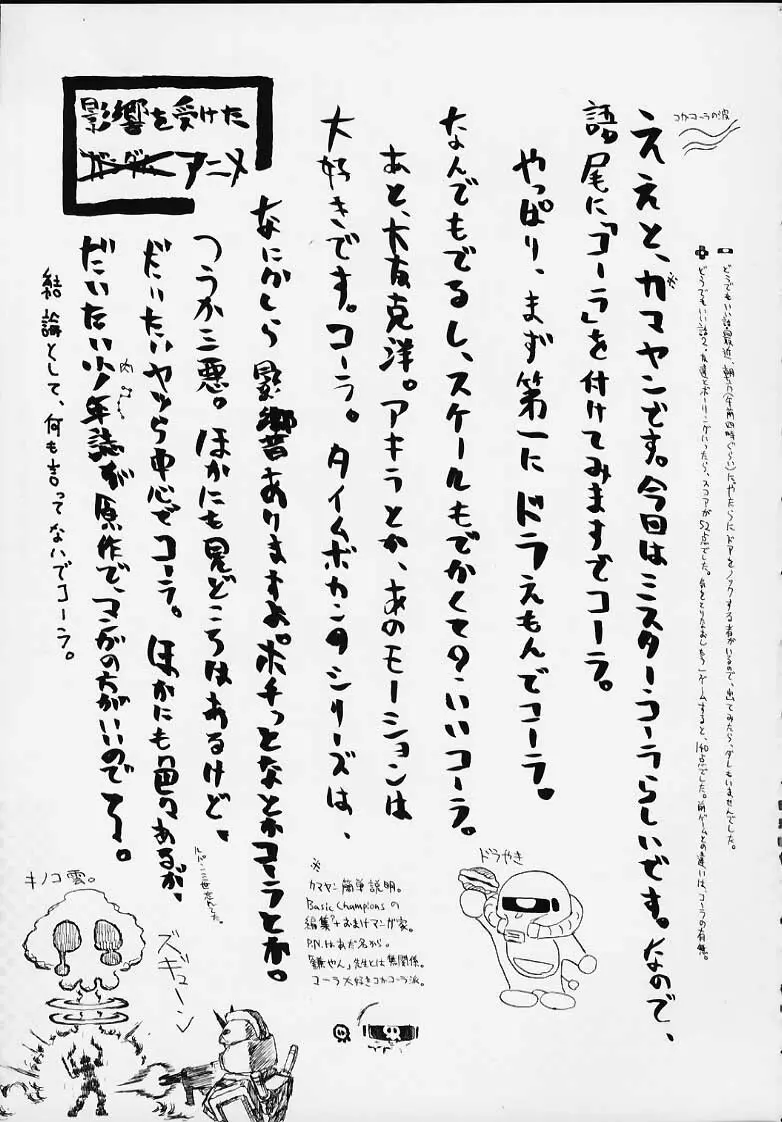 コカコーラの波
どうでもいい話 最近、朝方(午前四時ぐらい)にやたらにドアをノックする者がいるので、出てみたら、ダレもいませんでした。
どうでもいい話2、友達とボーリングいったら、スコアが52点でした。気をとりなおしもう1ゲームすると、140点でした。前ゲームとの違いは、コーラの有無。
ええと、カマヤンです。今回はミスターコーラらしいです。なので、
※
語尾に「コーラ」を付けてみますでコーラ。
やっぱり、まず第一にドラえもんでコーラ。
なんでもでるし、スケールもでかくての・いいコーラ。
あと、大友克洋。アキラとか、あのモーションは
大好きです。コーラ。タイムボカンのシリーズは、
なにかしら影響ありますよ。ポチっとなとかコーラとか。
つうか三悪。ほかにも見どころはあるけど、
だいたいヤツら中心でコーラ。ほかにも色々あるが、
ルパン三世忘れてた。
だいたい少年誌が原作で、マンガの方がいいのでコーラ。
結論として、何も言ってないでコーラ。
影響を受けた
ガンダム アニメ
ドラやき
※
カマヤン簡単説明。
Basic Championsの
編集?+おまけマンガ家。
P.N.はあだ名から。
「鎌やん」先生とは無関係。
コーラ大好きコカコーラ派。
キノコ雲。
ズギューン